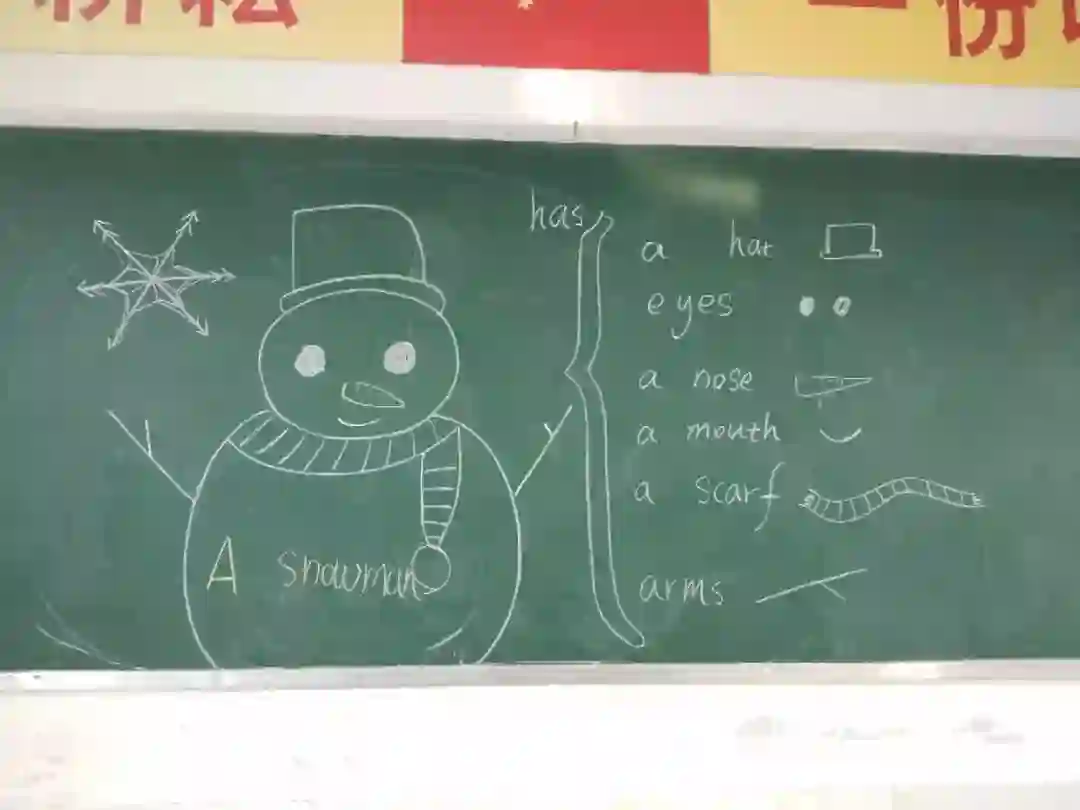 份
has
a hat
eyes
a nose
a mouth
a scarf
A snowman
arms